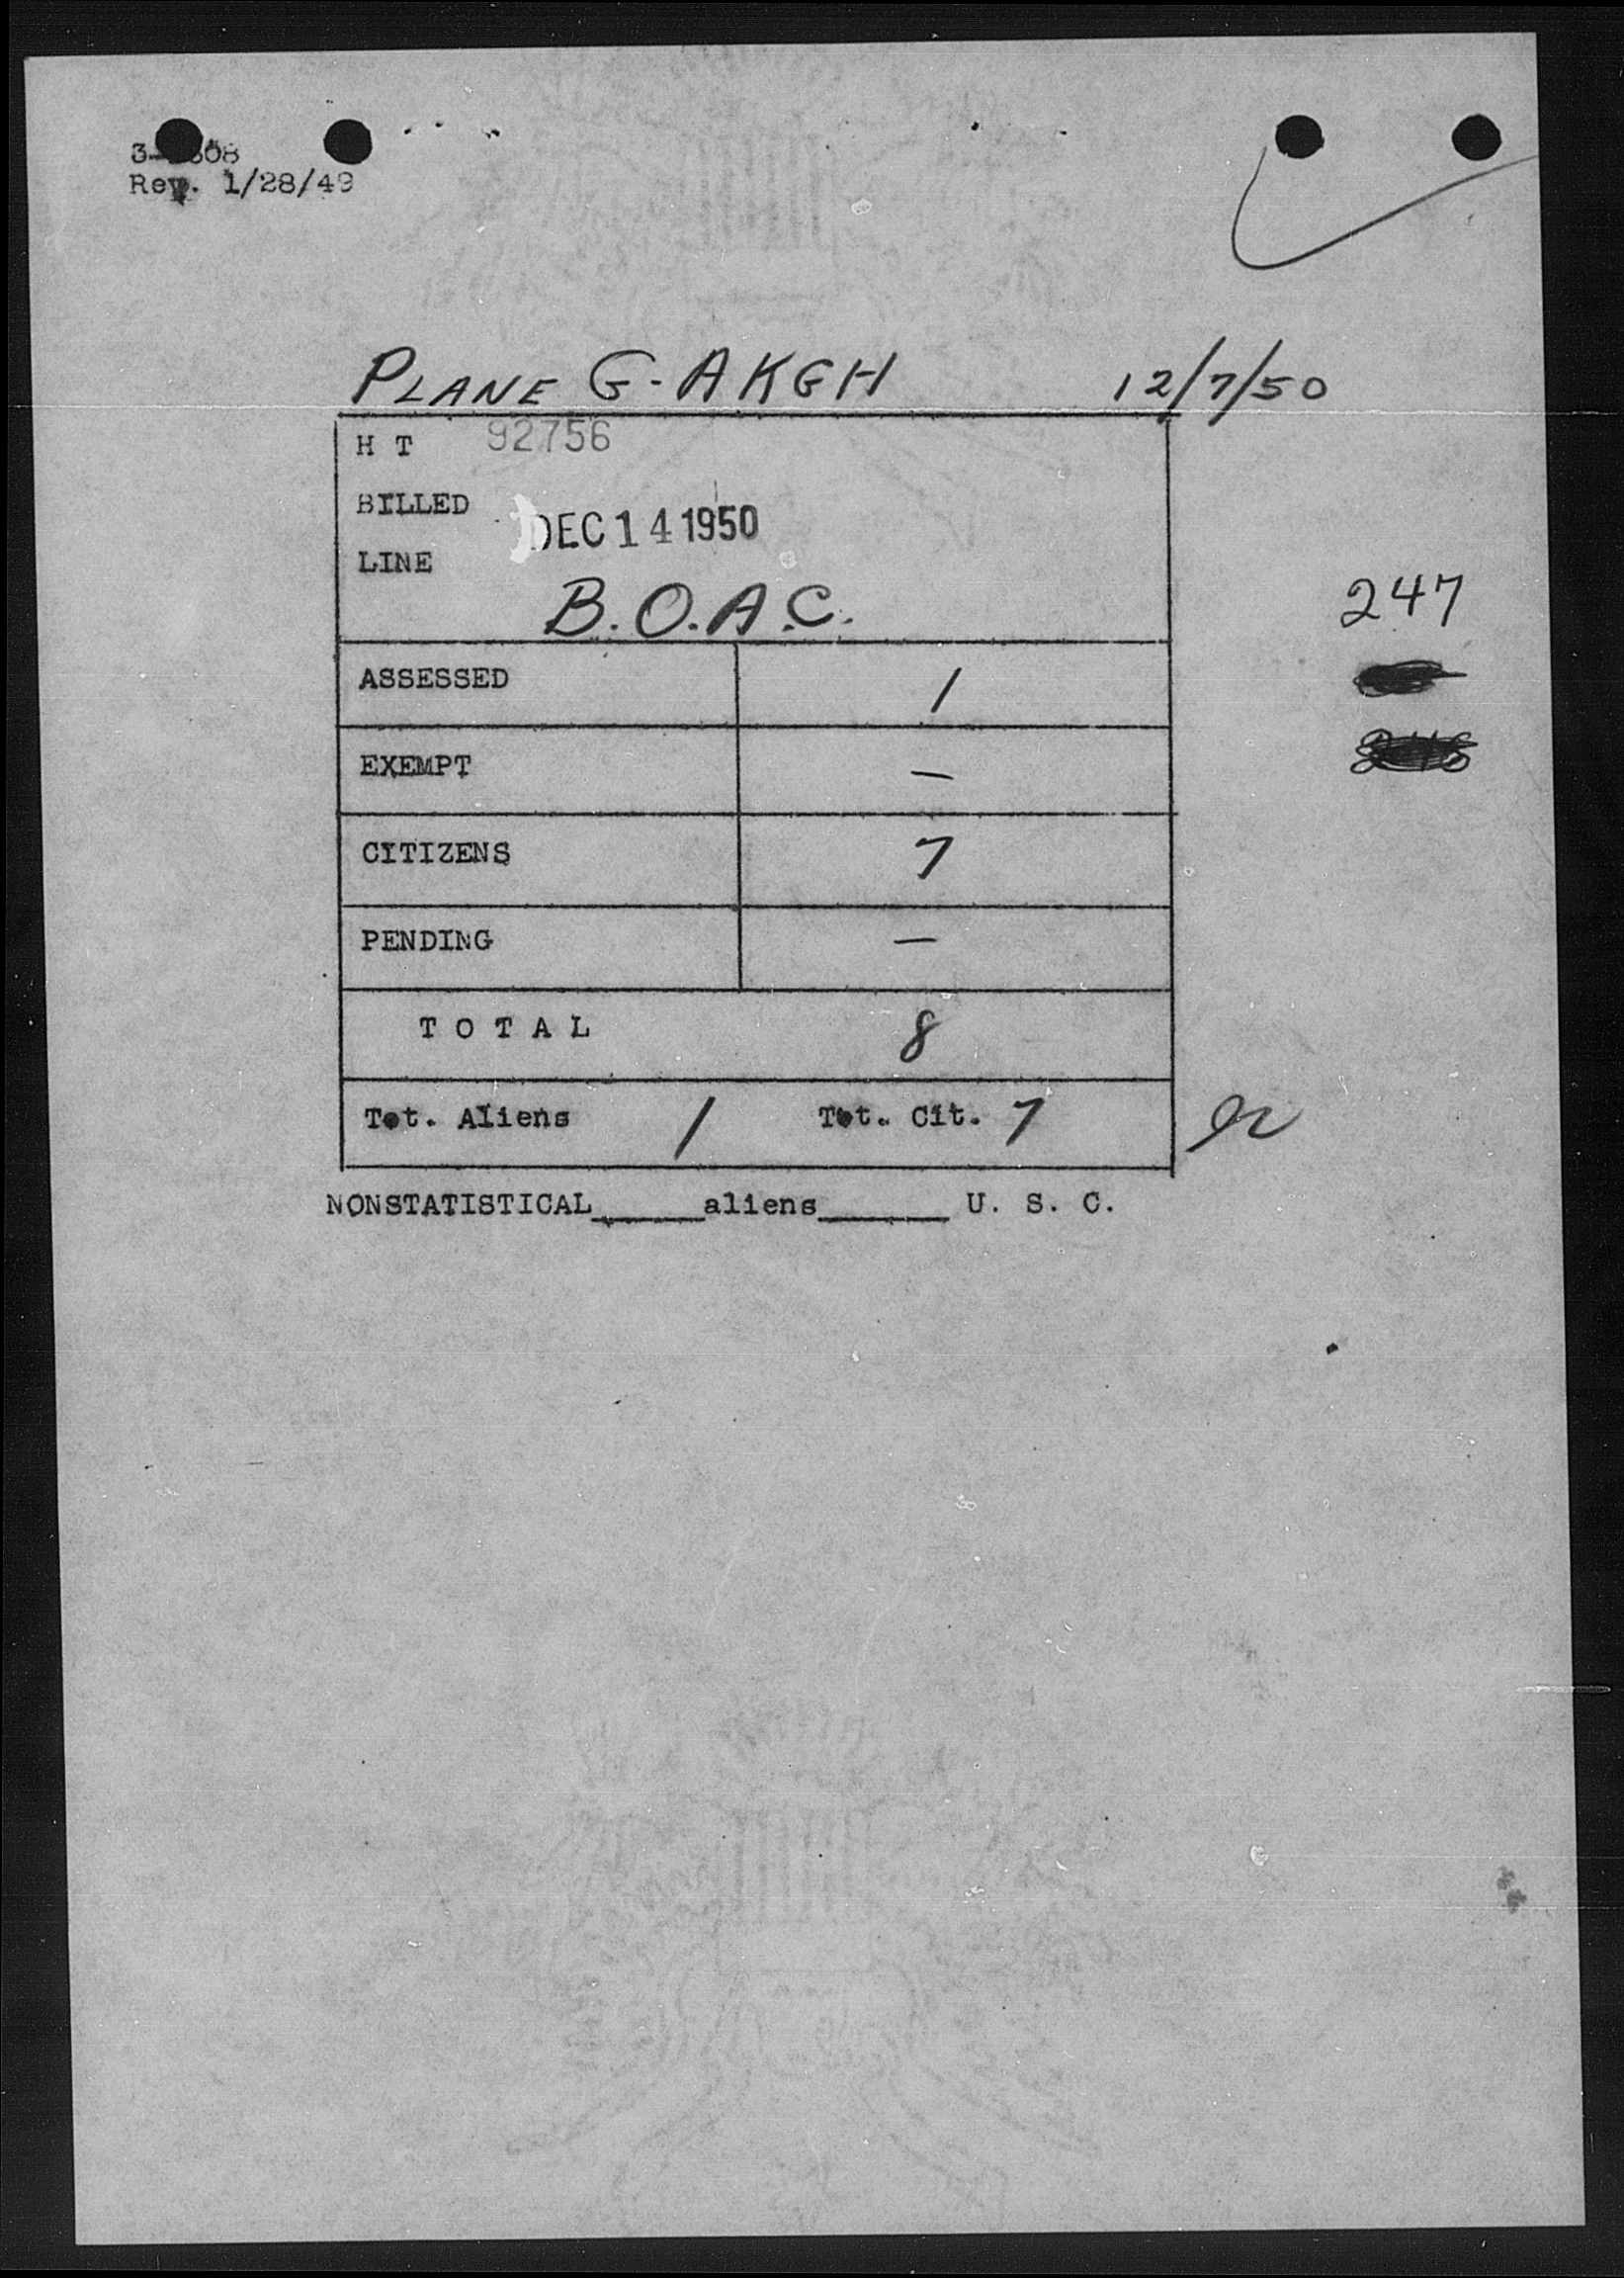 Rev. 1/28/49
PLANE G-AKGH 12/7/50
H T 92756
BILLED DEC 14 1950
LINE
B.O.A.C.
247
ASSESSED 1
EXEMPT —
CITIZENS 7
PENDING —
T O T A L 8
Tot. Aliens 1 Tot. Cit. 7
NONSTATISTICAL______aliens_______ U. S. C.